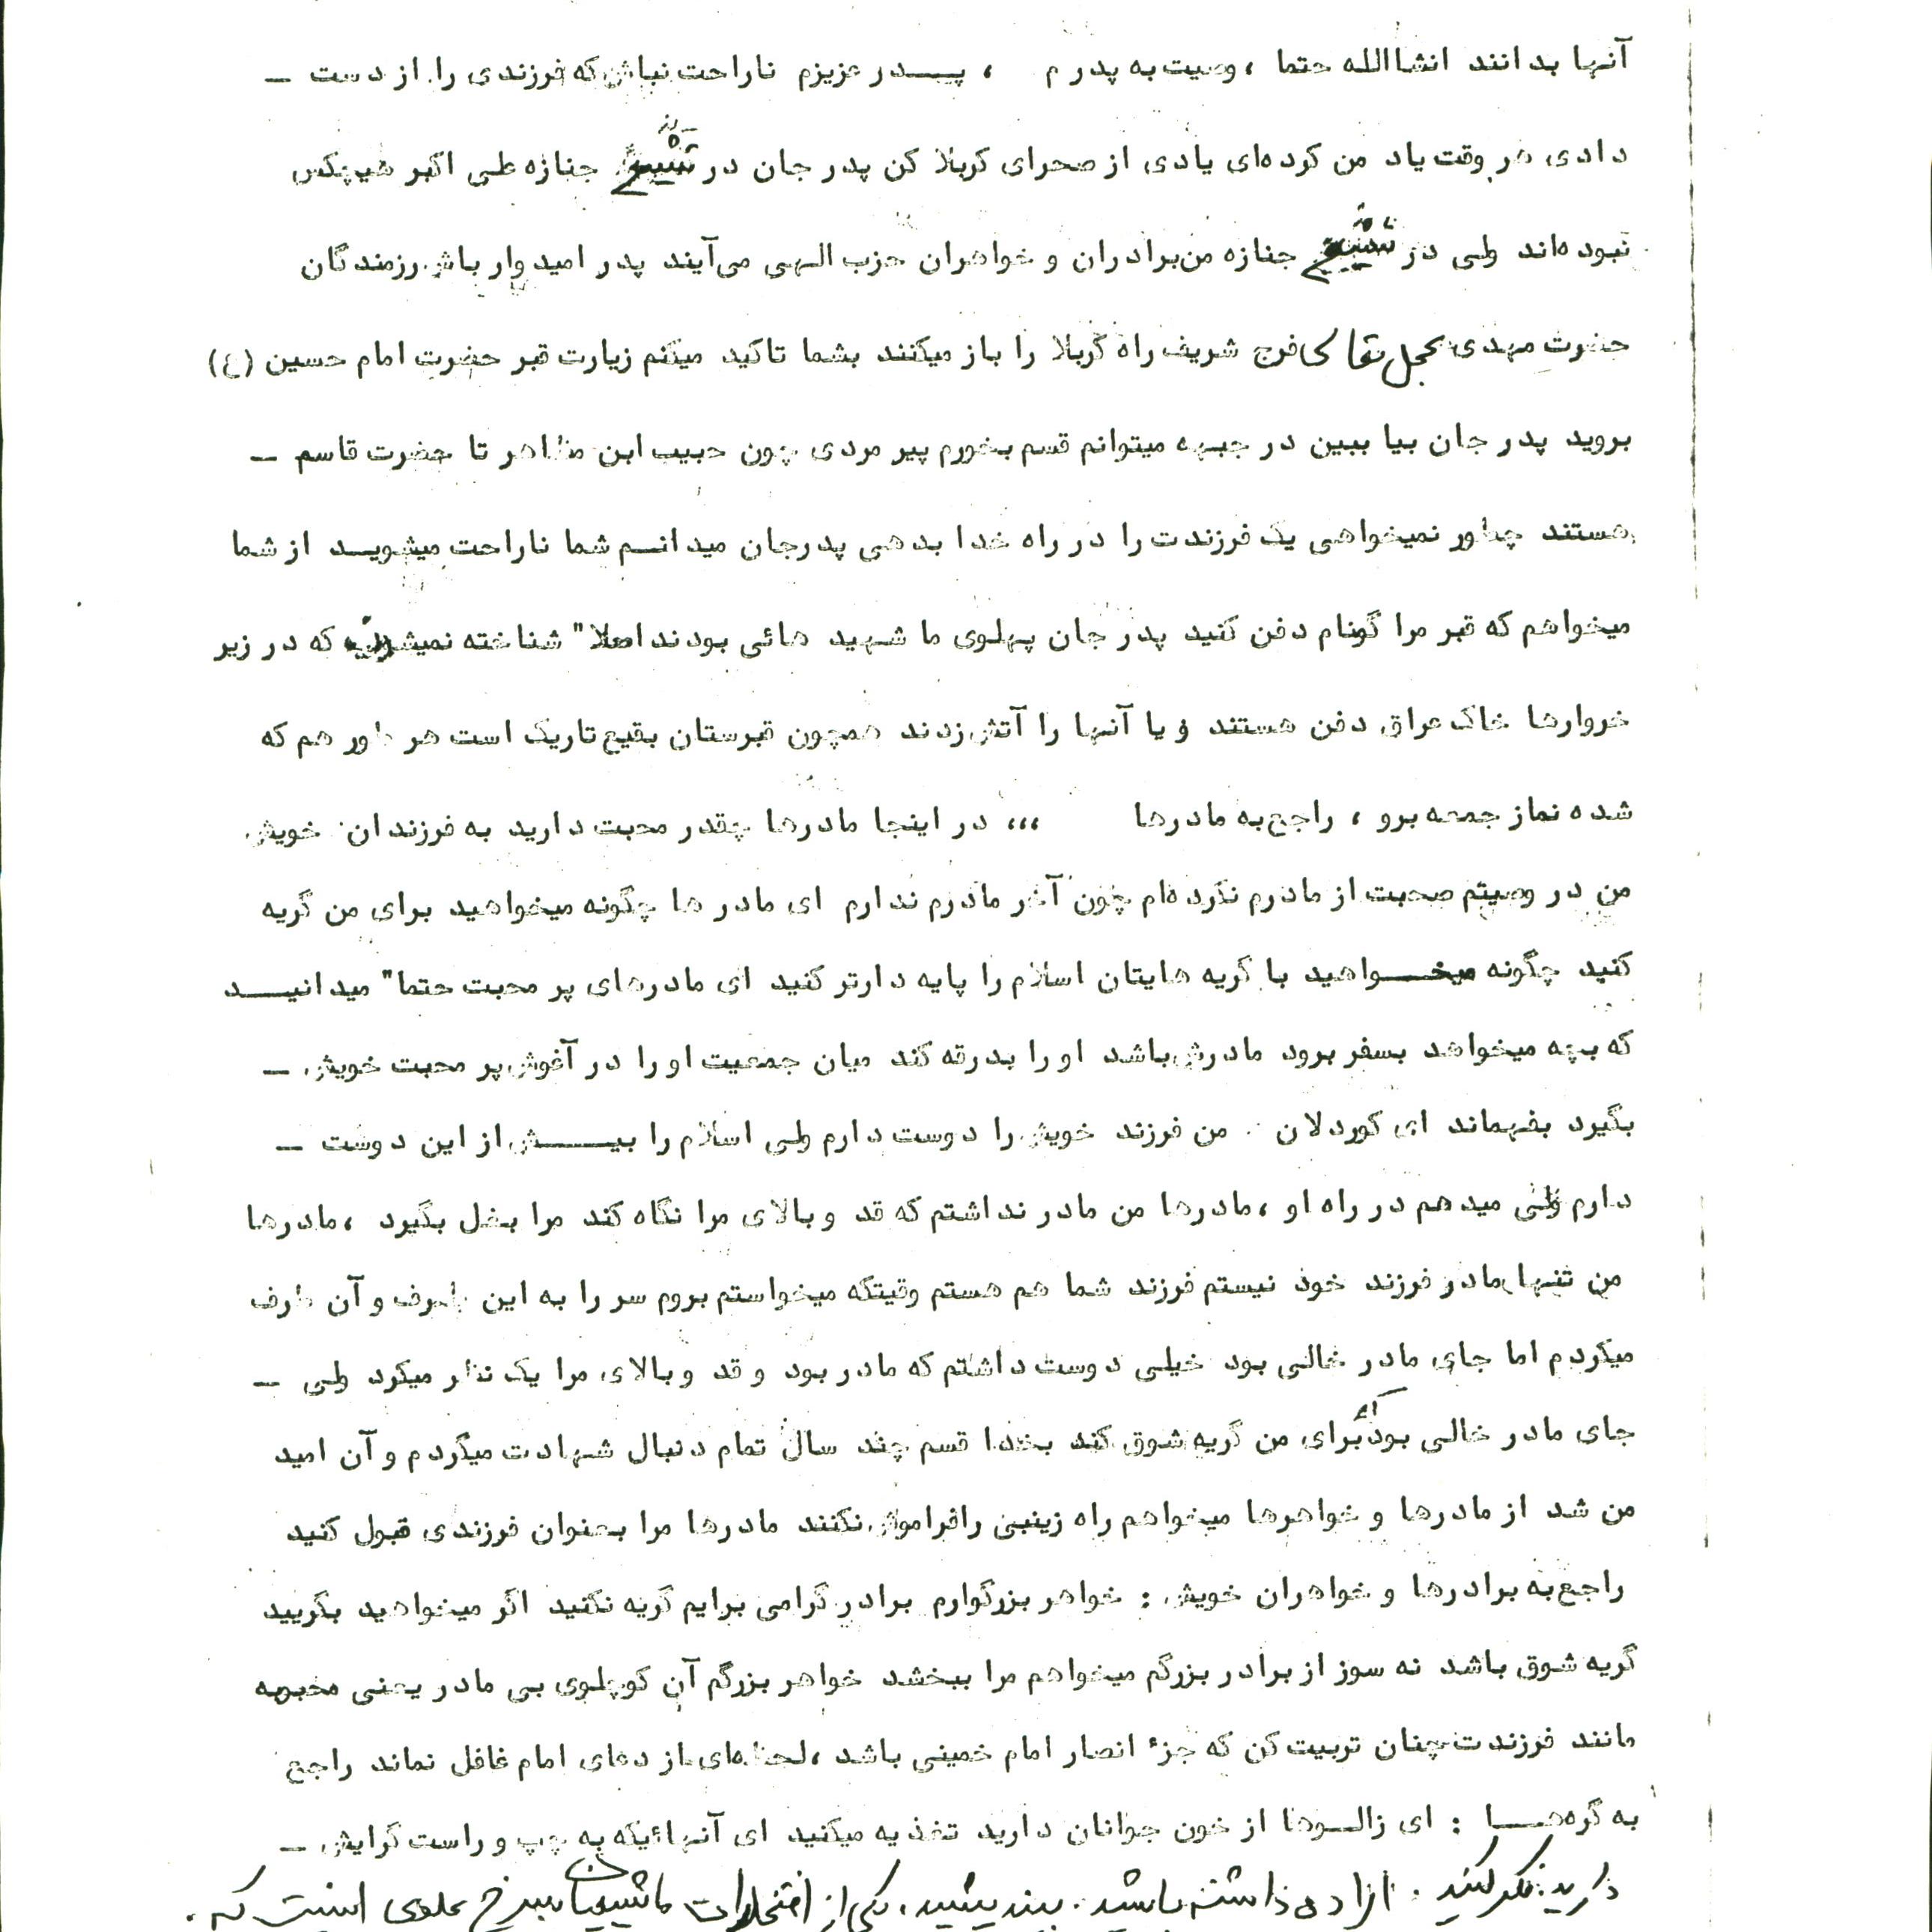 آنها بدانند انشاالله حتما ، وصیت به پدرم ، پدر عزیزم ناراحت نباش که فرزندی را از دست –
دادی هر وقت یاد من کرده‌ای یادی از صحرای کربلا کن پدر جان در تشییع جنازه علی اکبر هیچکس
نبوده‌اند ولی در تشییع جنازه من برادران و خواهران حزب الهی می‌آیند پدر امیدوار باش رزمندگان
حضرت مهدی عجل تعالی فرج شریف راه کربلا را باز میکنند بشما تاکید میکنم زیارت قبر حضرت امام حسین (ع)
بروید پدر جان بیا ببین در جبهه میتوانم قسم بخورم پیر مردی چون حبیب ابن مظاهر تا حضرت قاسم –
هستند چطور نمیخواهی یک فرزندت را در راه خدا بدهی پدرجان میدانم شما ناراحت میشوید از شما
میخواهم که قبر مرا گمنام دفن کنید پدر جان پهلوی ما شهید هائی بودند اصلا" شناخته نمیشوند که در زیر
خروارها خاک عراق دفن هستند و یا آنها را آتش زدند همچون قبرستان بقیع تاریک است هر طور هم که
شده نماز جمعه برو ، راجع به مادرها ،،، در اینجا مادرها چقدر محبت دارید به فرزندان خویش
من در وصیتم صحبت از مادرم نکرده‌ام چون آخر مادرم ندارم ای مادر ها چگونه میخواهید برای من گریه
کنید چگونه میخواهید با گریه هایتان اسلام را پایه دارتر کنید ای مادرهای پر محبت حتما" میدانید
که بچه میخواهد بسفر برود مادرش باشد او را بدرقه کند میان جمعیت او را در آغوش پر محبت خویش –
بگیرد بفهماند ای کوردلان من فرزند خویش را دوست دارم ولی اسلام را بیش از این دوست –
دارم ولی میدهم در راه او ، مادرها من مادر نداشتم که قد و بالای مرا نگاه کند مرا بغل بگیرد ، مادرها
من تنها مادر فرزند خود نیستم فرزند شما هم هستم وقیتکه میخواستم بروم سر را به این طرف و آن طرف
میکردم اما جای مادر خالی بود خیلی دوست داشتم که مادر بود و قد و بالای مرا یک نظر میکرد ولی –
جای مادر خالی بود که برای من گریه شوق کند بخدا قسم چند سال تمام دنبال شهادت میگردم و آن امید
من شد از مادرها و خواهرها میخواهم راه زینبی را فراموش نکنند مادرها مرا بعنوان فرزندی قبول کنید
راجع به برادرها و خواهران خویش : خواهر بزرگوارم برادر گرامی برایم گریه نکنید اگر میخواهید بگریید
گریه شوق باشد نه سوز از برادر بزرگم میخواهم مرا ببخشد خواهر بزرگم آن کوچلوی بی مادر یعنی محبوبه
مانند فرزندت چنان تربیت کن که جزء انصار امام خمینی باشد ، لحظه‌ای از دعای امام غافل نماند راجع
به گره‌ها : ای زالوها از خون جوانان دارید تغذیه میکنید ای آنهائیکه به چپ و راست گرایش –
دارید فکر کنید . آزادی داشته باشید . بیندیشید . یکی از افتخارات ما شیعیان سرخ علوی اینست که .